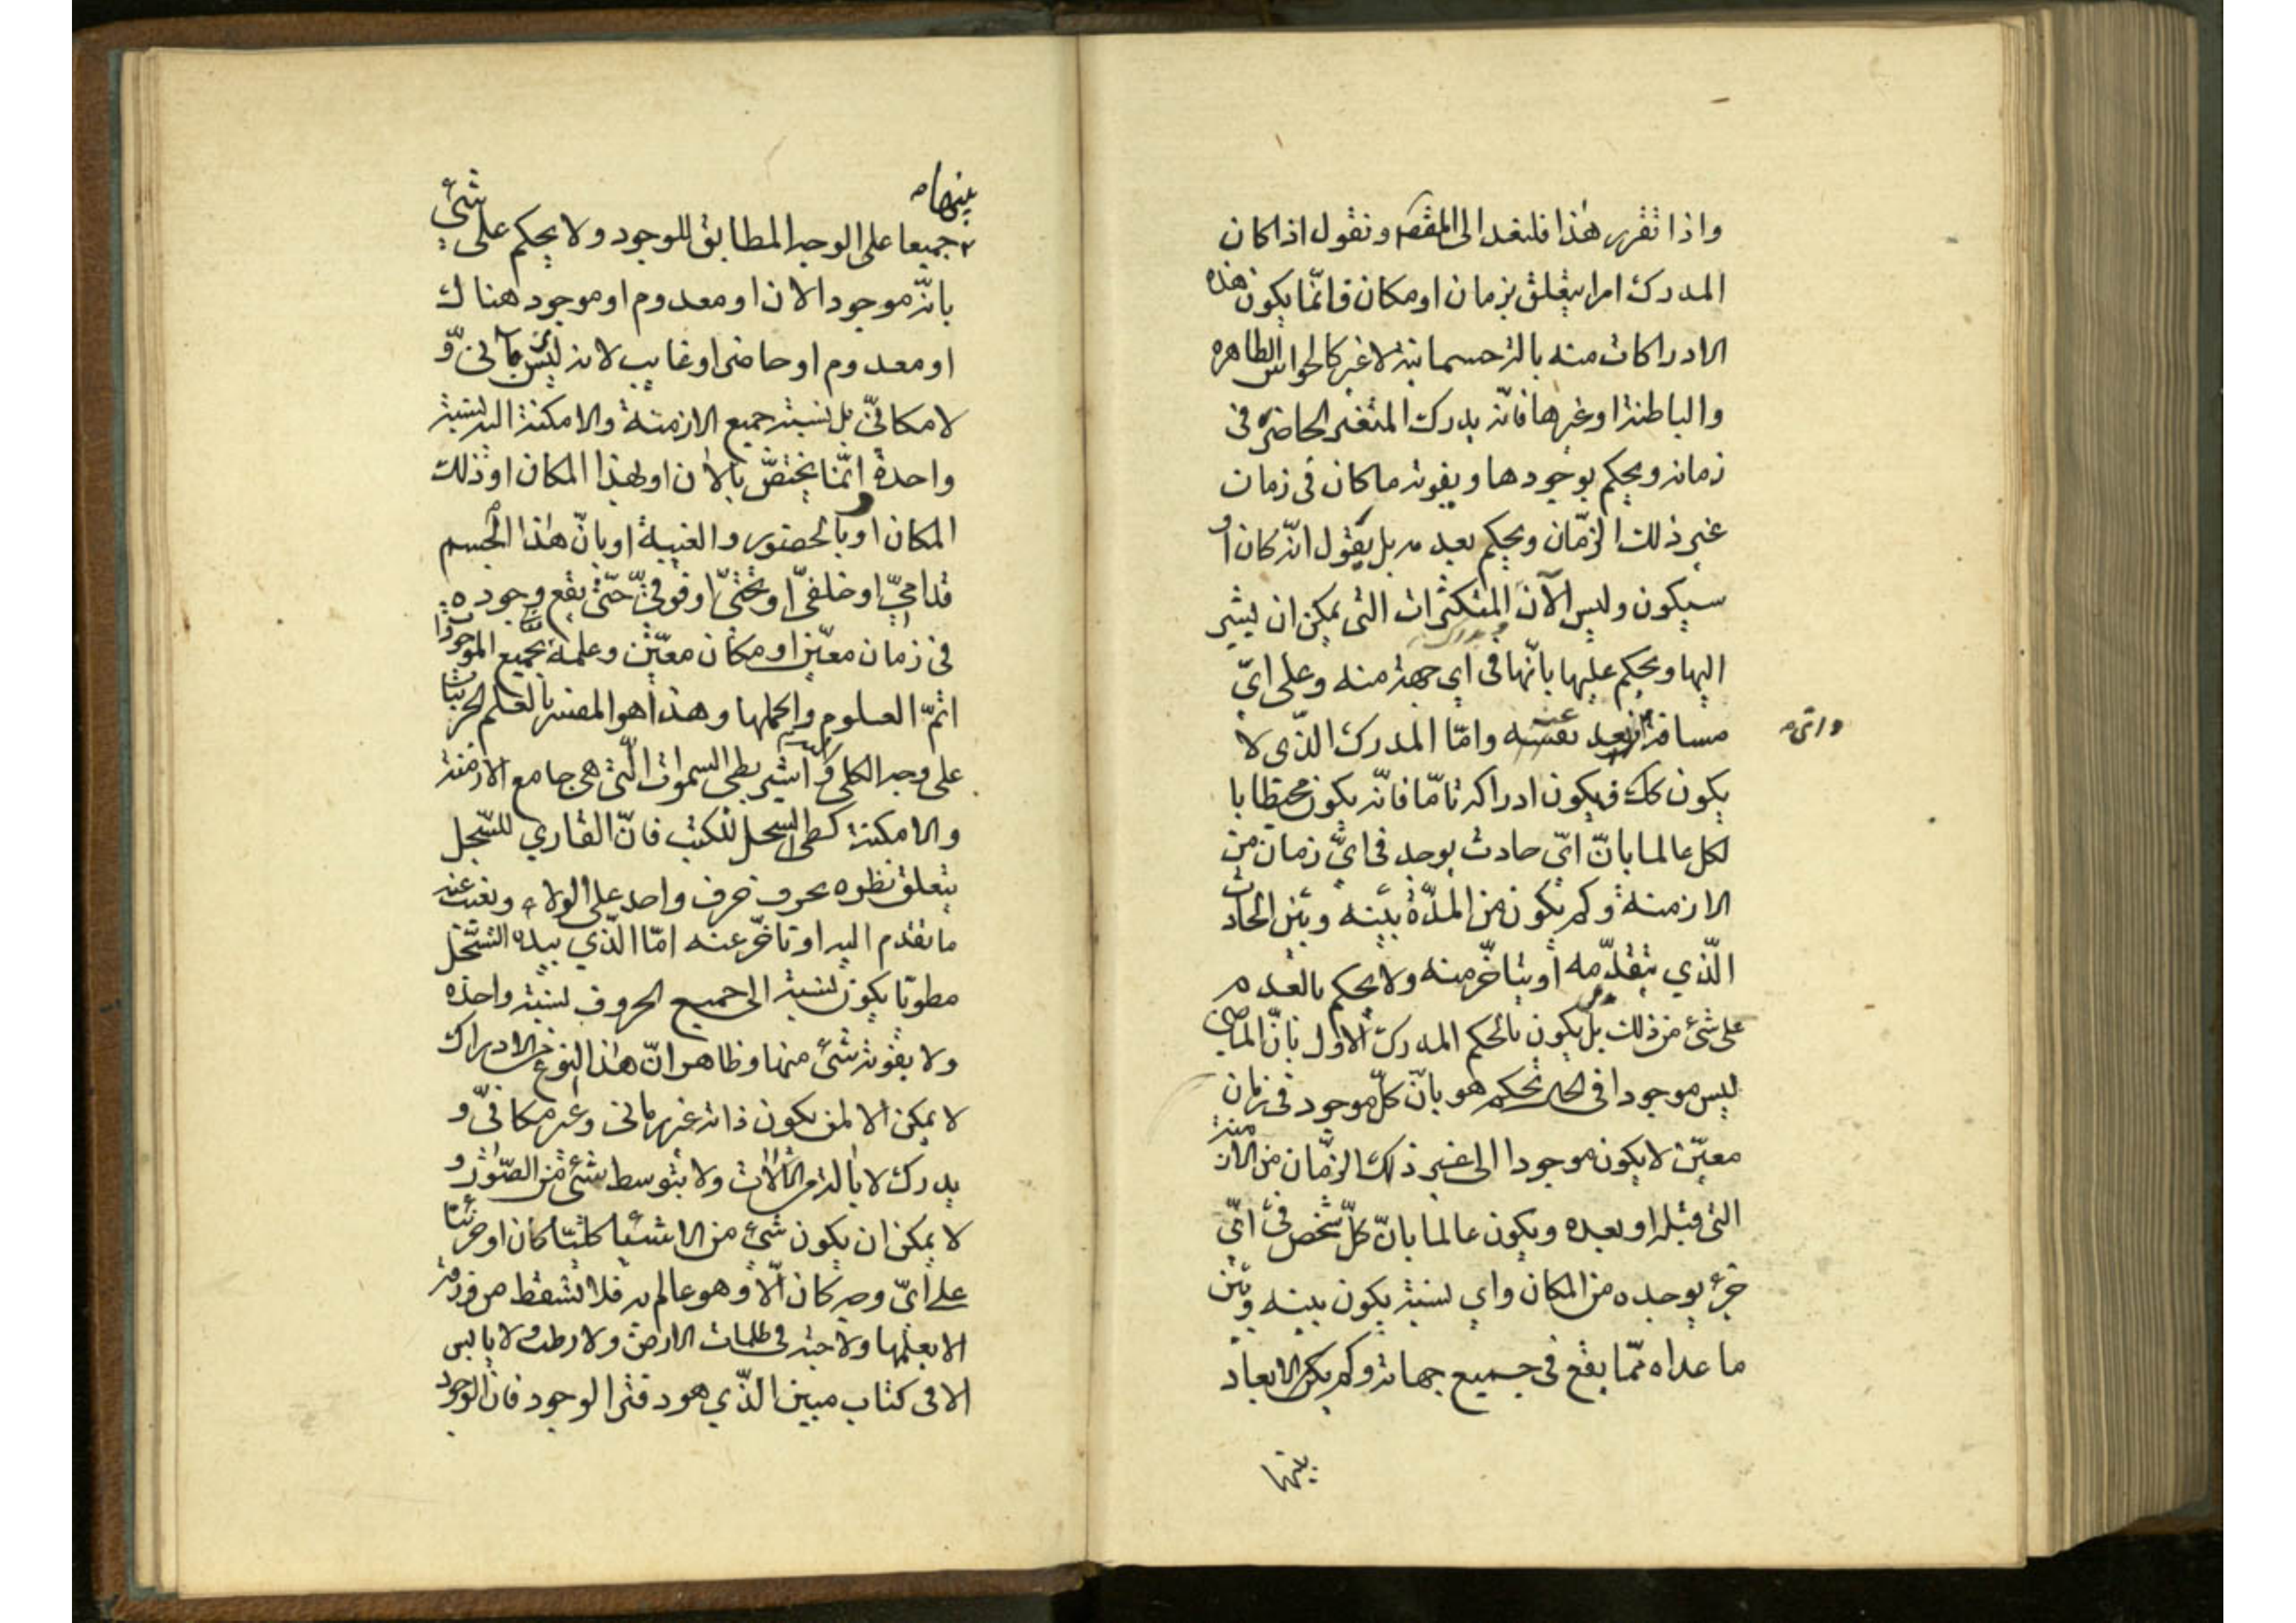 واذا تقرر هذا فلنعد الى المقصد ونقول اذا كان
المدرك امرا يتعلق بزمان او مكان فانّما يكون هذه
الادراكات منه بالة جسمانية لا غير كالحواس الظاهره
والباطنة او غيرها فانه يدرك المتغير الحاضرة فى
زمانه ويحكم بوجودها ويفوته ما كان فى زمان
غير ذلك الزّمان ويحكم بعدمه بل يقول انّه كان او
سيكون وليس الآن المتكثرات التى يمكن ان يشير
اليها ويحكم عليها بانّها فى اي جهة منه وعلى ايّ
مسافة بعد عنه وامّا المدرك الذّى لا
يكون كك فيكون ادراكه تامّا فانّه يكون محيطا با
لكل عالما بانّ ايّ حادث يوجد فى ايّ زمان من
الازمنة وكم يكون من المدّة بينه وبين الحادث
الّذي يتقدّمه او يتاخّر منه ولا يحكم بالعدم
على شئ من ذلك بل يكون بالحكم المدرك الاول بانّ الماضى
ليس موجودا فى الحال يحكم هو بانّ كلّ موجود فى زمان
معيّن لا يكون موجودا الى غير ذلك الزّمان من الازمنة
التى قبله او بعده ويكون عالما بانّ كلّ شخص فى ايّ
جزء يوجده من المكان واي نسبة يكون بينه وبين
ما عداه ممّا يقع فى جميع جهاته وكم يكن الابعاد
بينها
بينها
جميعا على الوجه المطابق للوجود ولا يحكم على شئ
بانّه موجود الان او معدوم او موجود هناك
او معدوم او حاضر او غايب لانه ليس بزمانىّ و
لا مكانىّ بل نسبة جميع الازمنة والامكنة اليه نسبة
واحدة وانّما يختصّ بالان او بهذا المكان او ذلك
المكان او بالحضور والغيبة او بانّ هذا الجسم
قدامىّ او خلفىّ او تحتىّ او فوقىّ حتّى يقع وجوده
فى زمان معيّن او مكان معيّن وعلمه بجميع الموجودات
اتمّ العلوم واكملها وهذا هو المفسر بالعلم الجزئيات
على وجه الكلى و اشير بطى السموات الّتى هى جامع الازمنة
والامكنة كطى السجل للكتب فانّ القاري للسّجل
يتعلق نظره بحرف حرف واحد على الولاء ويغيب عنه
ما تقدم اليه او تاخّر عنه امّا الّذي بيده السّجل
مطويّا يكون نسبته الى جميع الحروف نسبة واحده
ولا يفوته شئ منها وظاهر انّ هذا النوع من الادراك
لا يمكن الا لمن يكون ذاته غير زمانى وغير مكانىّ و
يدرك لا بالة من الالات ولا بتوسط شئ من الصّور و
لا يمكن ان يكون شئ من الاشيا كليّا كان او جزئيّا
على ايّ وجه كان الّا وهو عالم به فلا تسقط من ورقة
الا يعلمها ولا حبة فى ظلمات الارض ولا رطب ولا يابس
الا فى كتاب مبين الذّي هو دفتر الوجود فان الوجود